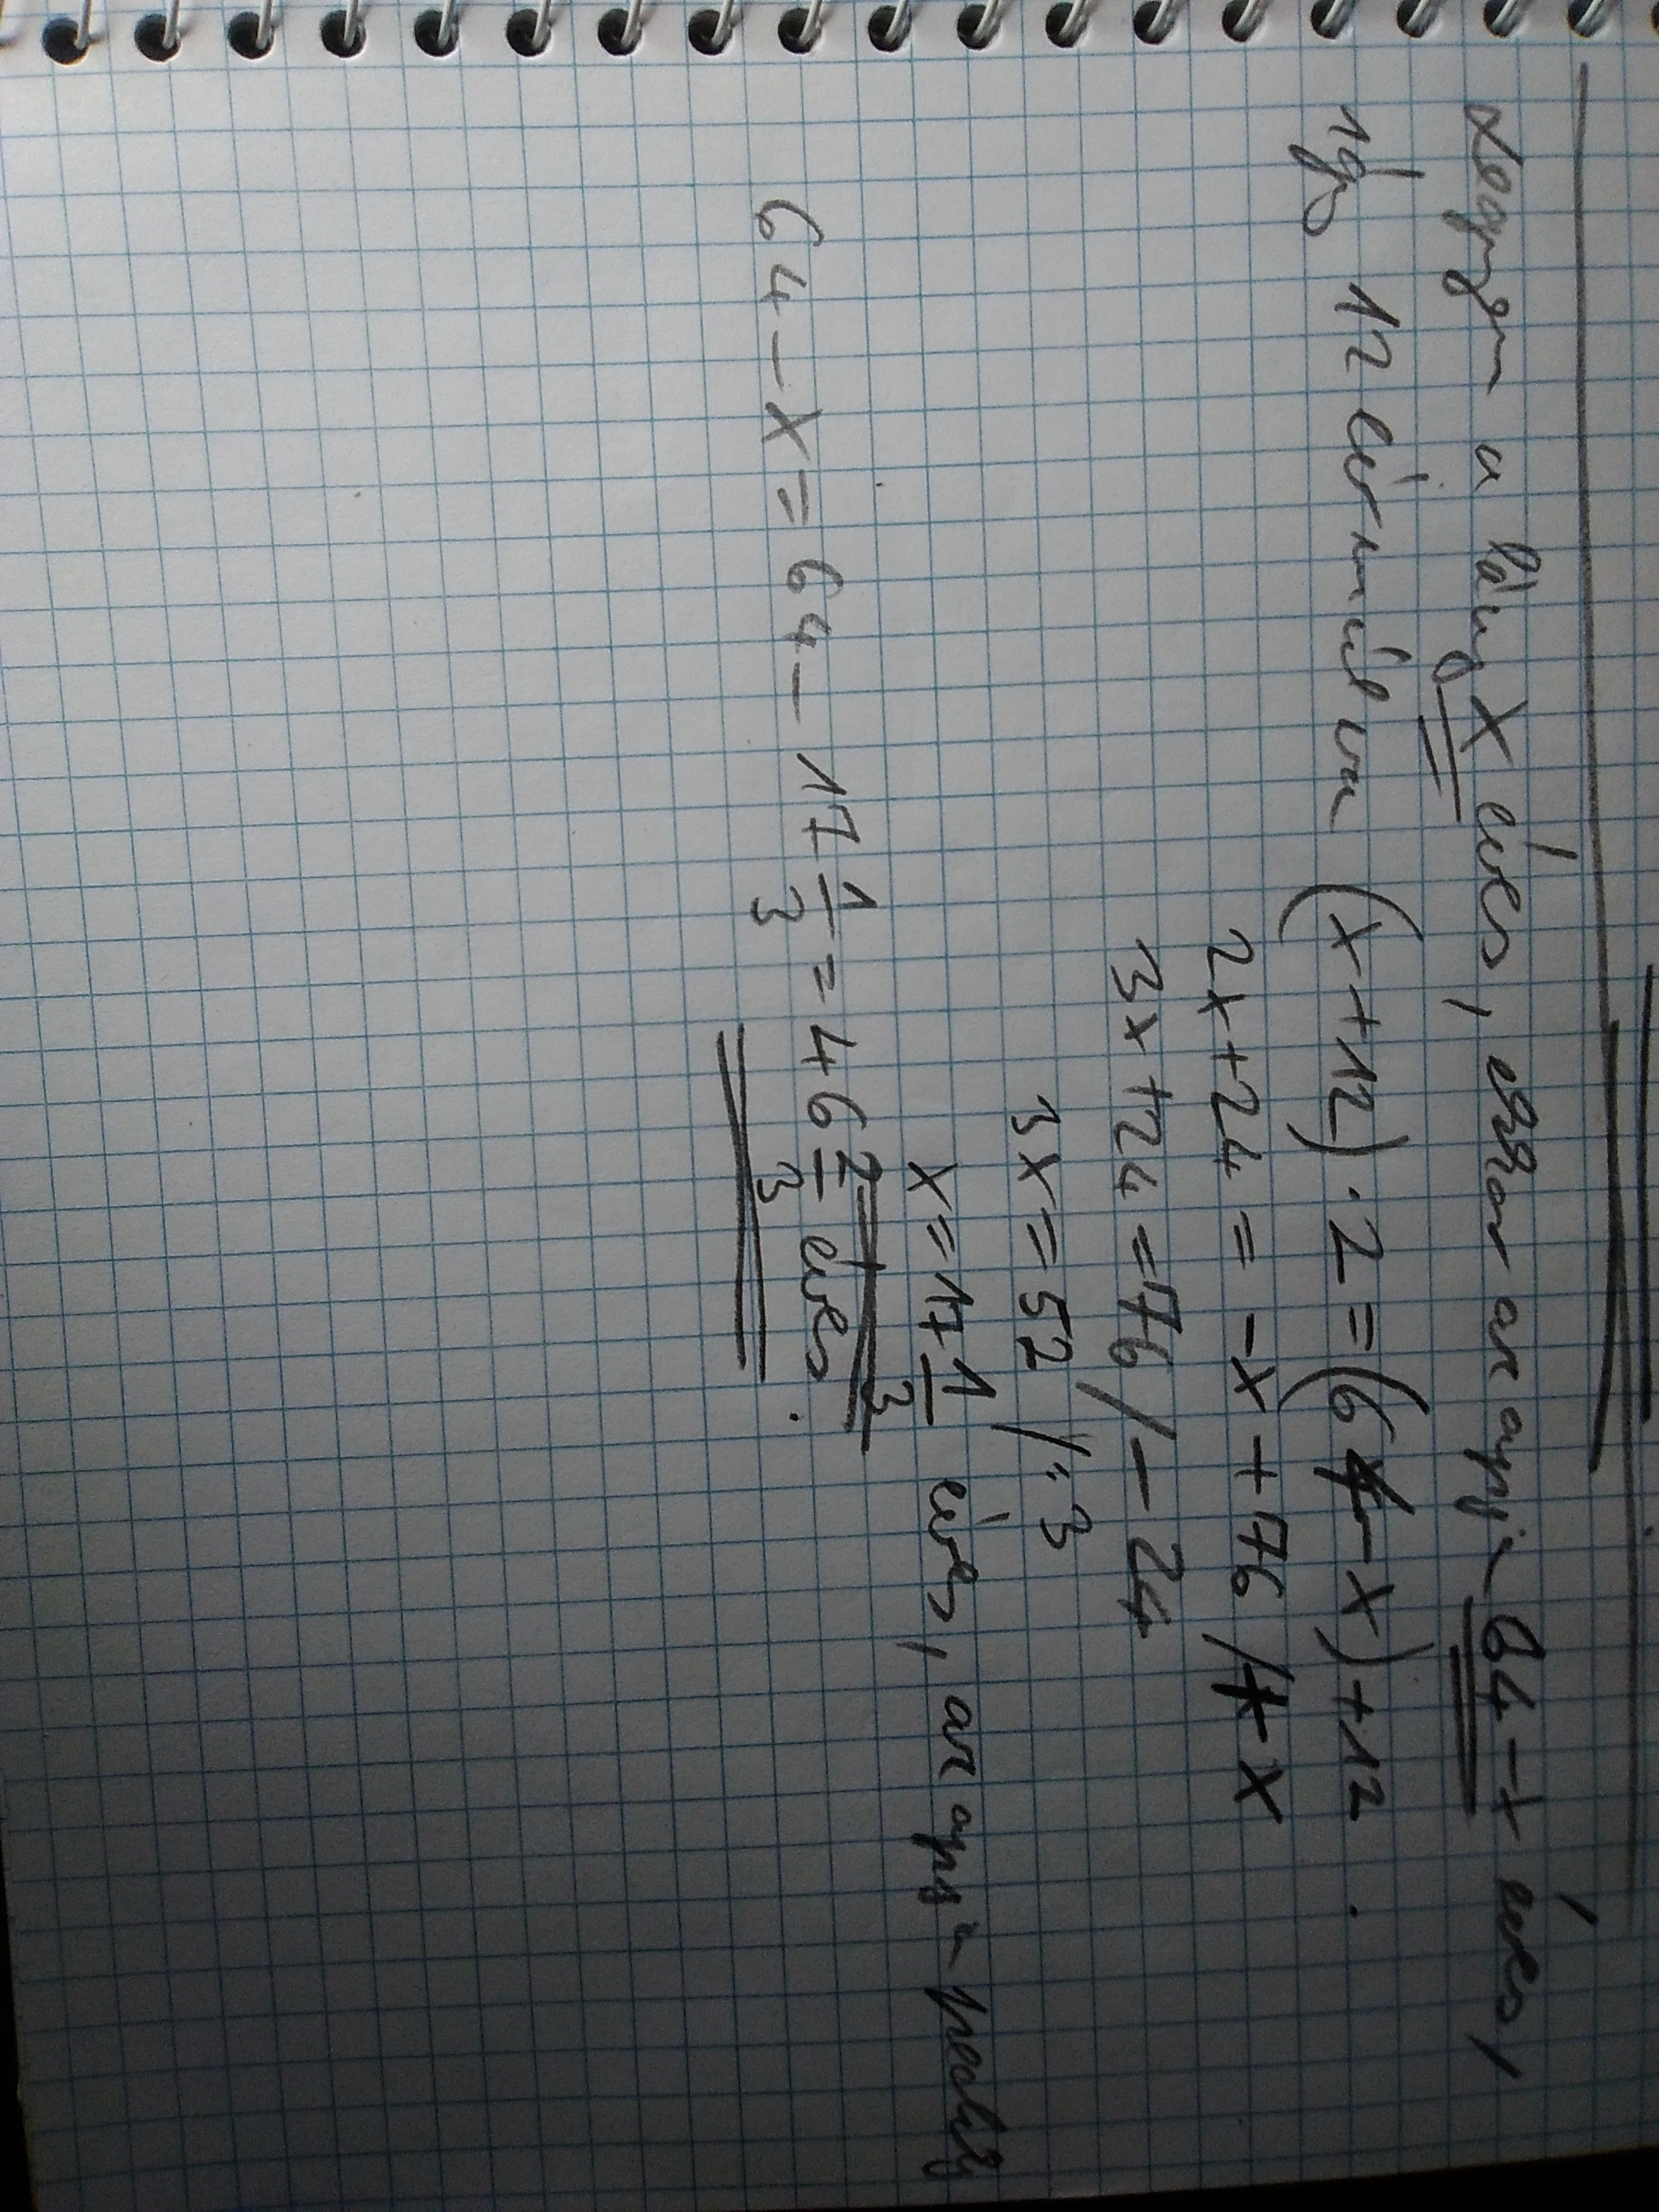 Legyen a lány X éves, ekkor az apja 64-x éves,
így 12 év múlva (x+12)·2=(64-x)+12.
2x+24=-x+76/+x
3x+24=76/-24
3x=52/:3
x=17 1/3 éves, az apja pedig
64-x=64-17 1/3=46 2/3 éves.